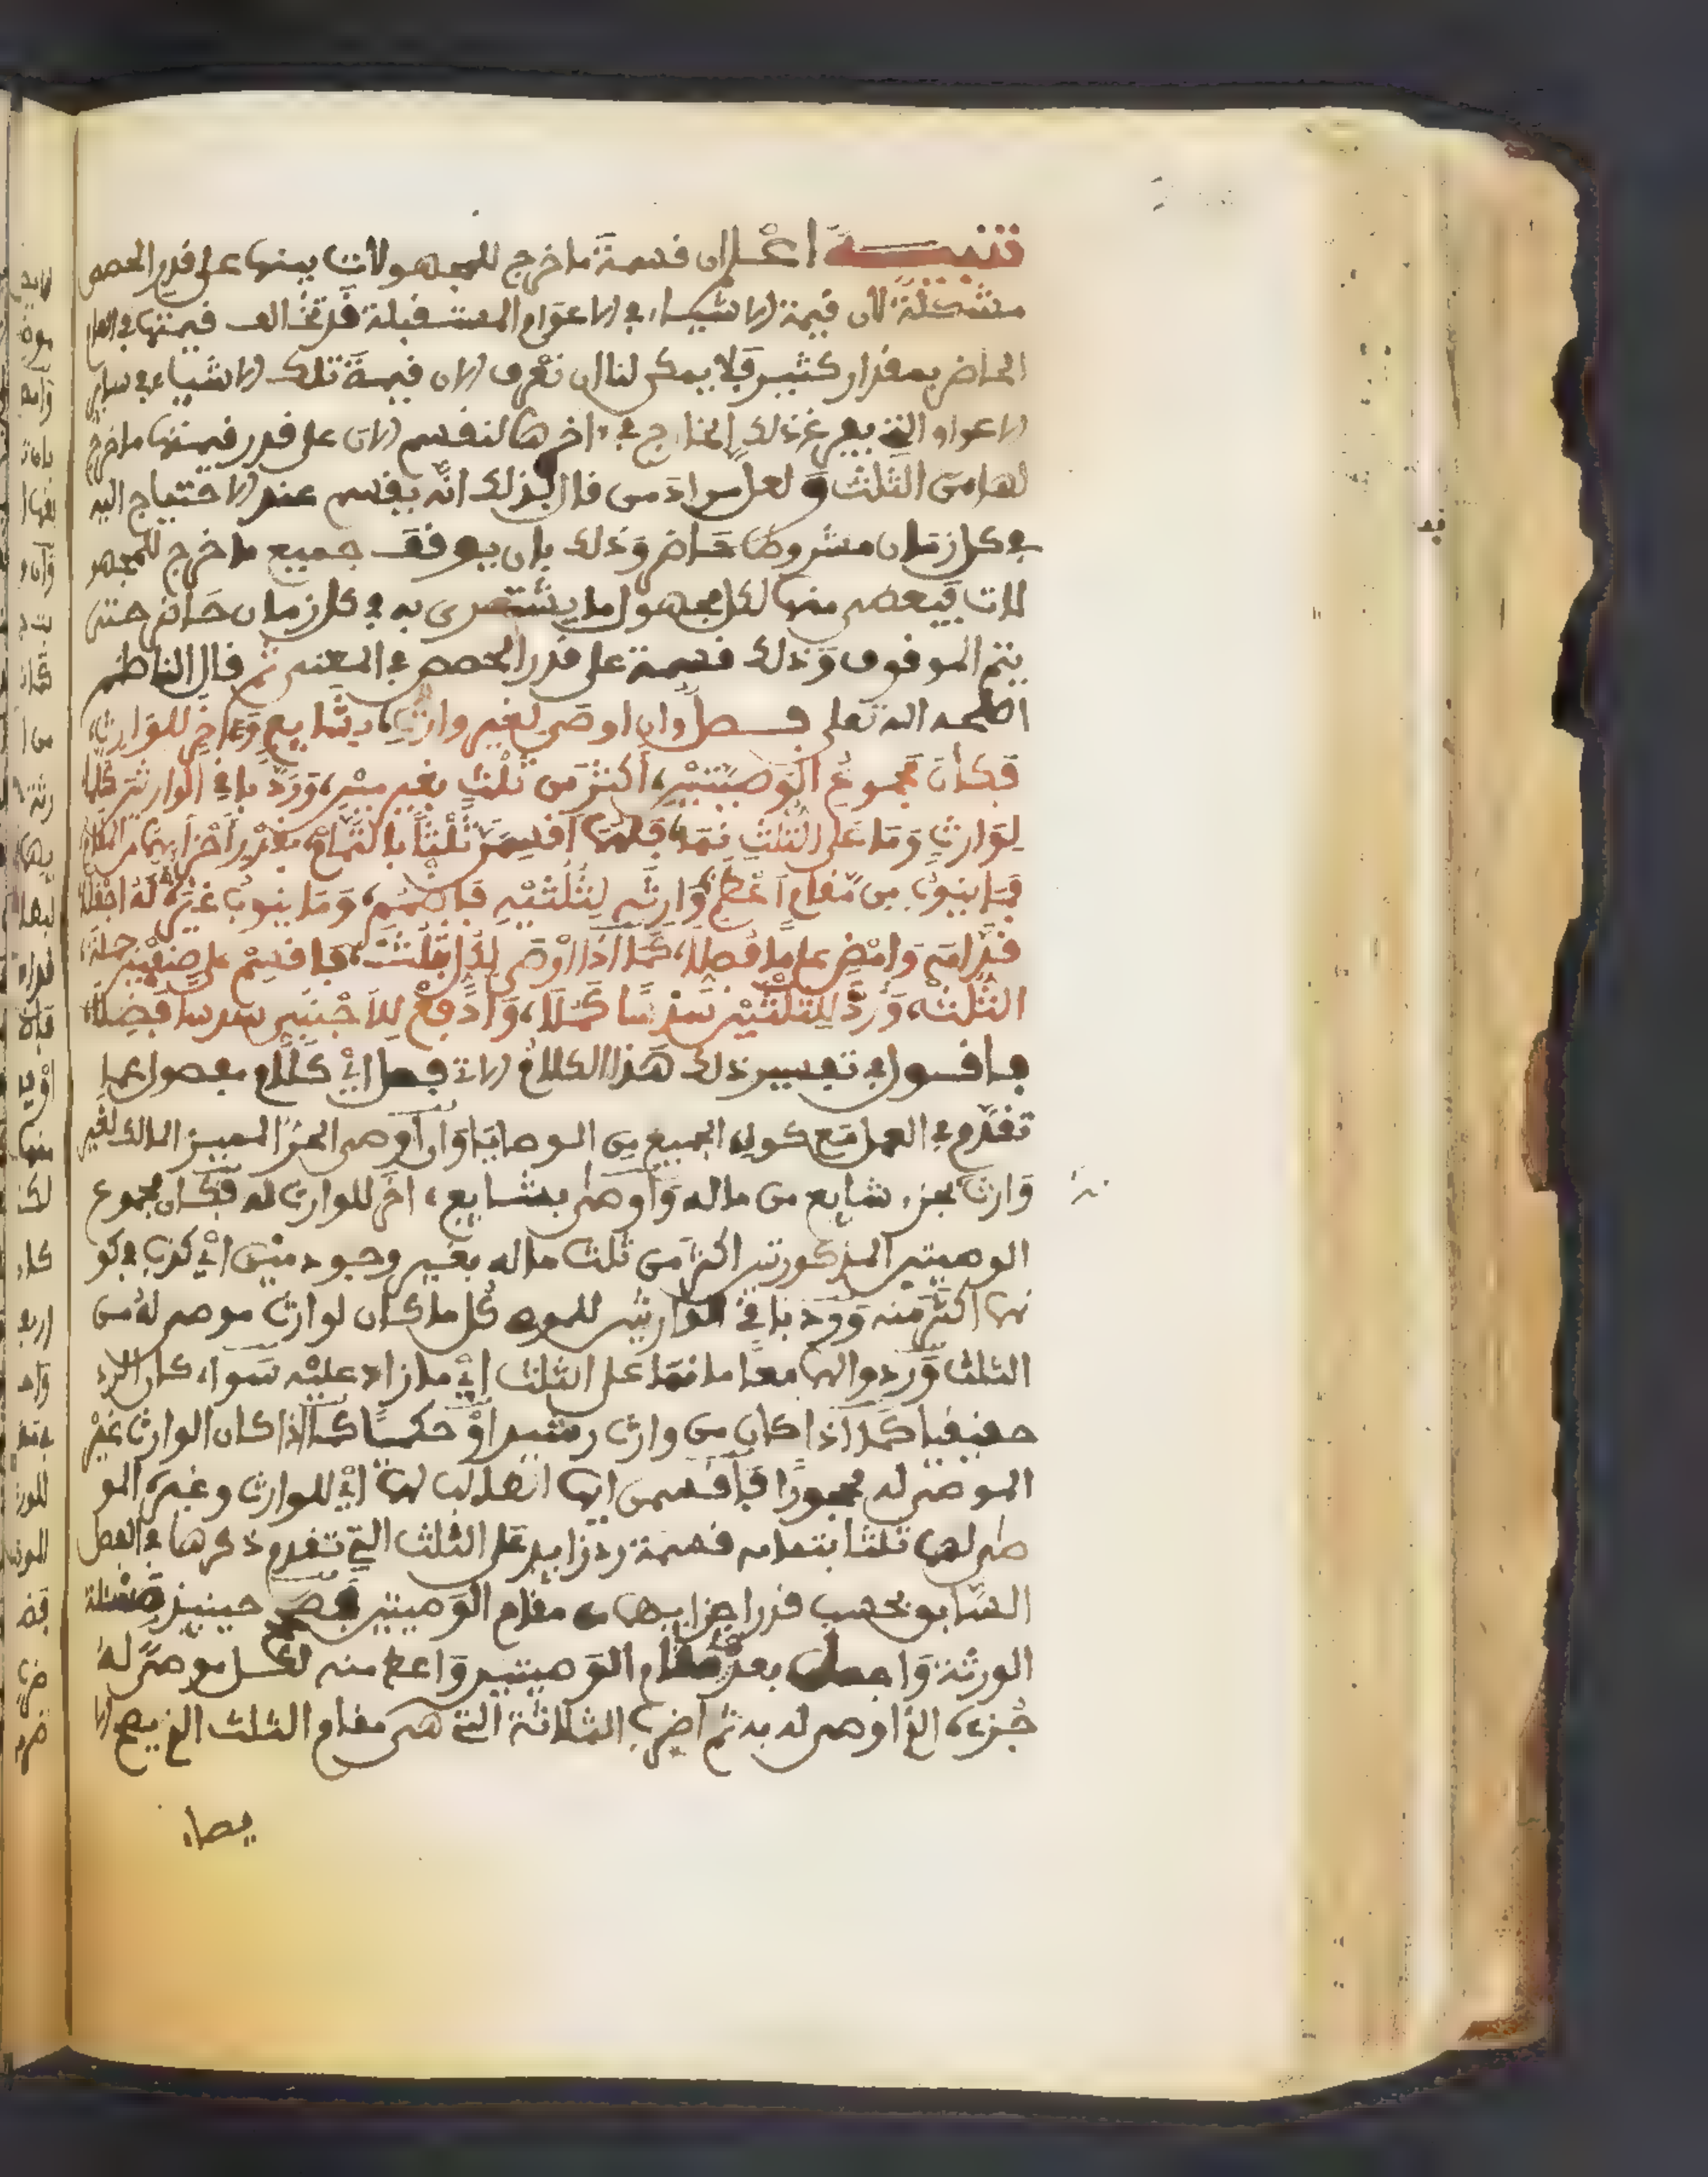 تنبيه اعلم ان قسمة ما خرج للمجهولات بينها على قدر الحصص
مشكلة لان قيمة الاشياء في الاعوام المستقبلة قد تخالف قيمتها في العام
الحاضر بمقدار كثير فلا يمكن لنا ان نعرف الان قيمة تلك الاشياء في سائر
الاعوام التي يفرغ ذلك الخارج في ءاخرها لنقسم الان على قدر قيمتها ما خرج
لها من الثلث ولعل مراد من قال بذلك انه يقسم عند الاحتياج اليه
في كل زمان حاضر وذلك بان يوقف جميع ما خرج للمجهو
لات فيعطى منها لكل مجهول ما يشترى به في كل زمان حاضر حتى
يتم الموقوف وذلك قسمة على قدر الحصص في المعنى ثم قال الناظم
الله تعلى فصل وان اوصى لغير وارث، بشايع وءاخر للوارث،
فكان مجموع الوصيتين، اكثر من ثلث بغير مين، ورد باقي الوارثين كلما
لوارث وما على الثلث نما، فلهما اقسمن ثلثا بالتمام، بقدر اجزايهما من المقام
فما ينوب من مقام اعظم وارثه لثلثيه فاضمم، وما ينوب غيره له اجعلا
قدامه وامض على ما فصلا، كما اذا اوصى لكل بثلث، فاقسم على صنفين جملة
الثلث، ورد للثلثين سدسا كملا، وادفع للاجنبي سدسا فضلا،
فاقول في تفسير ذلك هذا الكلام الاتي فصل اي كلام مفصول عما
تقدم في العمل مع كونه الجميع من الوصايا وان اوصى الحر المميز المالك لغير
وارث بجزء شايع من ماله واوصى بشايع ءاخر للوارث له فكان مجموع
الوصيتين المذكورتين اكثر من ثلث ماله بغير وجود مين اي كذب في كو
نها اكثر منه ورد باقي الوارثين للموصي كل ما كان لوارث موصى له من
الثلث وردوا لهما معا ما نما على الثلث اي ما زاد عليه سواء كان الرد
حقيقيا كما اذا كان من وارث رشيد او حكميا كما اذا كان الوارث غير
الموصى له محجورا فاقسمن ايها الطالب لهما اي للوارث وغيره المو
صى لهما ثلثا بتمامه قسمة رد زايد على الثلث التي تقدم ذكرها في الفصل
السابق بحسب قدر اجزايهما من مقام الوصيتين حينئذ
الورثة واجعل بعد مقام الوصيتين واعط منه لكل موصى له
جزءه الذي اوصى له به ثم اضرب الثلاثة التي هي مقام الثلث الذي يصح الا
يصاء